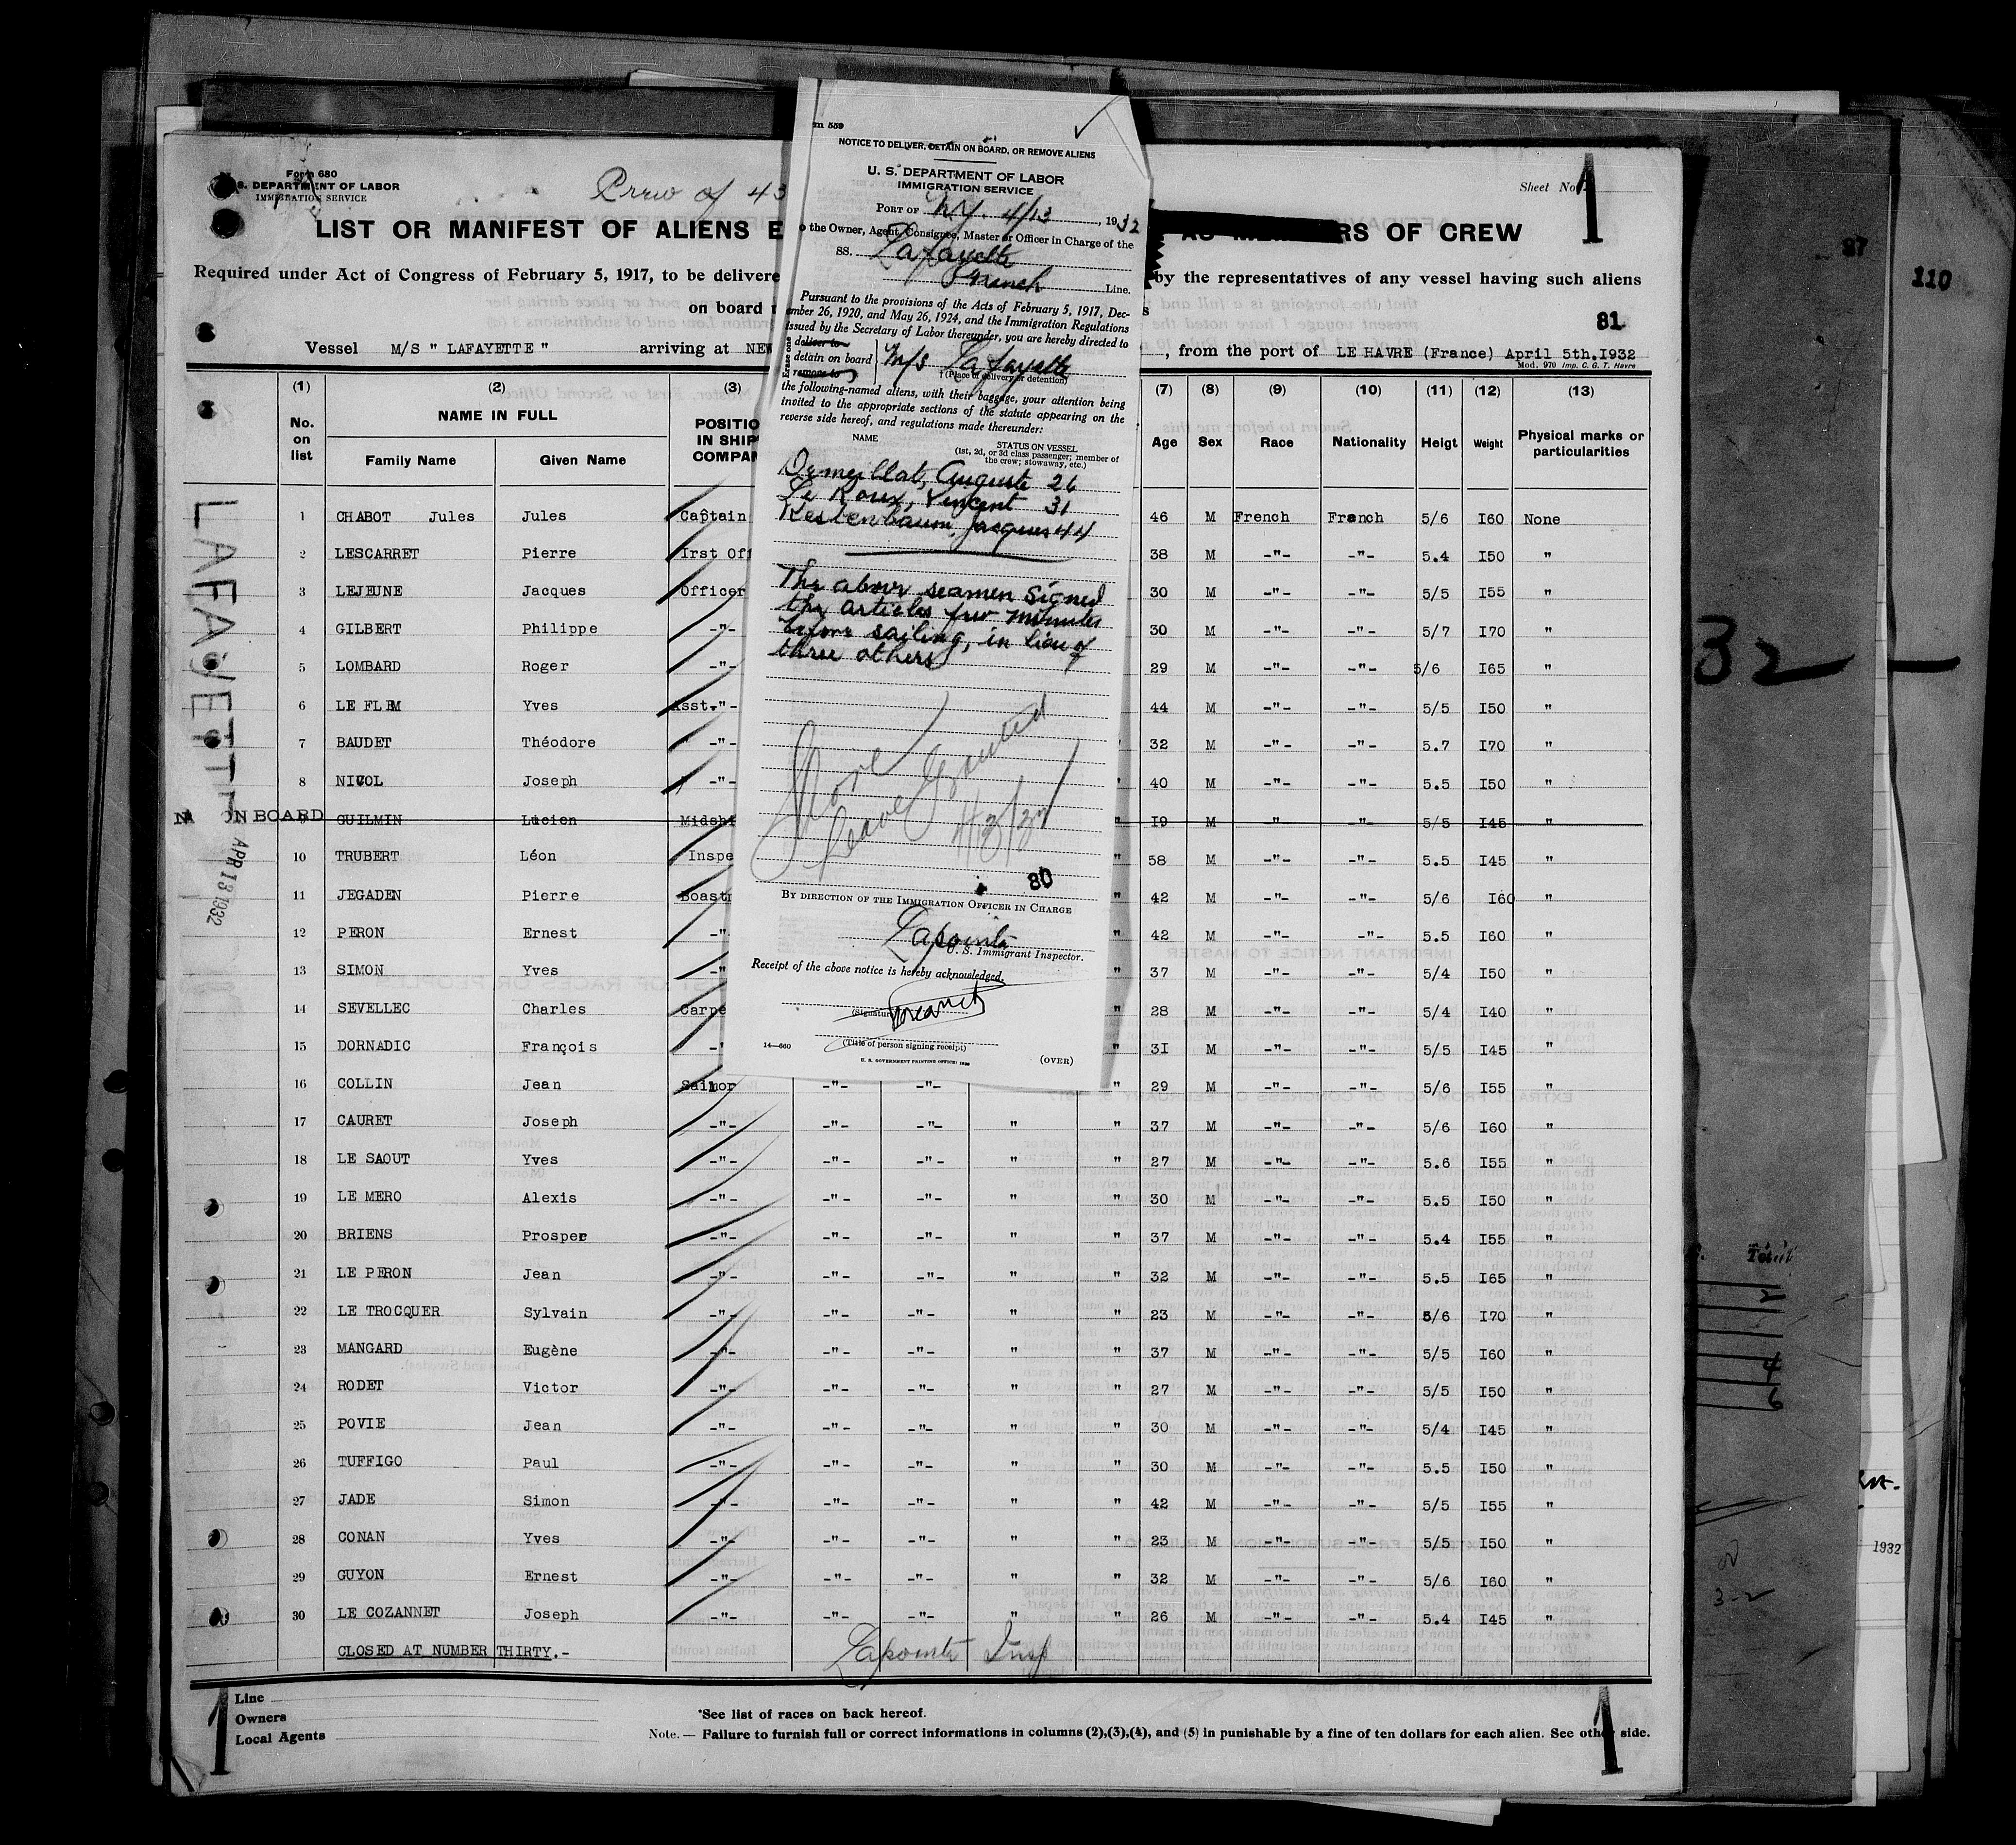 Form 680
S. DEPARTMENT OF LABOR
IMMIGRATION SERVICE
Crew of 43
Sheet No. 1
LIST OR MANIFEST OF ALIENS E
RS OF CREW
Required under Act of Congress of February 5, 1917, to be delivere
by the representatives of any vessel having such aliens
on board
81
Vessel M/S " LAFAYETTE " arriving at NEW
, from the port of LE HAVRE (France) April 5th.I932
Mod. 970 Imp. C. G. T. Havre
m 559
NOTICE TO DELIVER, DETAIN ON BOARD, OR REMOVE ALIENS
U. S. DEPARTMENT OF LABOR
IMMIGRATION SERVICE
PORT OF N.Y. 4/13, 1932
o the Owner, Agent, Consignee, Master or Officer in Charge of the
SS. Lafayette
French Line.
Pursuant to the provisions of the Acts of February 5, 1917, Dec-
ember 26, 1920, and May 26, 1924, and the Immigration Regulations
issued by the Secretary of Labor thereunder, you are hereby directed to
Erase one
deliver to
detain on board
remove to
M/S Lafayette
†(Place of delivery or detention)
the following-named aliens, with their baggage, your attention being
invited to the appropriate sections of the statute appearing on the
reverse side hereof, and regulations made thereunder:
NAME
STATUS ON VESSEL
(1st, 2d, or 3d class passenger; member of
the crew; stowaway, etc.)
Auguste 26
Le Roux, Vincent 31
Kestenbaum, Jacques 44
The above seamen signed
the articles few minutes
before sailing, in lieu of
three others
Shore
Leave Granted
4/13/32
80
BY DIRECTION OF THE IMMIGRATION OFFICER IN CHARGE
Lapointe
U. S. Immigrant Inspector.
Receipt of the above notice is hereby acknowledged.
(Signature
(Title of person signing receipt)
14—660
U. S. GOVERNMENT PRINTING OFFICE: 1930
(OVER)
(1) (2) (3) (7) (8) (9) (10) (11) (12) (13)
No. on list
NAME IN FULL
Family Name Given Name
POSITIO
IN SHIP'
COMPAN
Age Sex Race Nationality Heigt Weight Physical marks or particularities
1 CHABOT Jules Jules Captain 46 M French French 5/6 I60 None
2 LESCARRET Pierre Irst Off 38 M -"- -"- 5.4 I50 "
3 LEJEUNE Jacques Officer 30 M -"- -"- 5/5 I55 "
4 GILBERT Philippe -"- 30 M -"- -"- 5/7 I70 "
5 LOMBARD Roger -"- 29 M -"- -"- 5/6 I65 "
6 LE FLEM Yves Asst."- 44 M -"- -"- 5/5 I50 "
7 BAUDET Théodore " -"- " 32 M -"- -"- 5.7 I70 "
8 NICOL Joseph -"- " 40 M -"- -"- 5.5 I50 "
9 GUILMIN Lucien Midshi " I9 M -"- -"- 5/5 I45 "
10 TRUBERT Léon Inspe " 58 M -"- -"- 5.5 I45 "
11 JEGADEN Pierre Boast " 42 M -"- -"- 5/6 I60 "
12 PERON Ernest -" " 42 M -"- -"- 5.5 I60 "
13 SIMON Yves -" " 37 M -"- -"- 5/4 I50 "
14 SEVELLEC Charles Carpe " 28 M -"- -"- 5/4 I40 "
15 DORNADIC François -" " 3I M -"- -"- 5/5 I45 "
16 COLLIN Jean Sailor -"- -"- " 29 M -"- -"- 5/6 I55 "
17 CAURET Joseph -"- -"- -"- " " 37 M -"- -"- 5/6 I60 "
18 LE SAOUT Yves -"- -"- -"- " " 27 M -"- -"- 5.6 I55 "
19 LE MERO Alexis -"- -"- -"- " " 30 M -"- -"- 5.5 I50 "
20 BRIENS Prosper -"- -"- -"- " " 37 M -"- -"- 5.4 I55 "
21 LE PERON Jean -"- -"- -"- " " 32 M -"- -"- 5.5 I65 "
22 LE TROCQUER Sylvain -"- -"- -"- " " 23 M -"- -"- 5/6 I70 "
23 MANGARD Eugène -"- -"- -"- " " 37 M -"- -"- 5/5 I60 "
24 RODET Victor -"- -"- -"- " " 27 M -"- -"- 5/5 I50 "
25 POVIE Jean -"- -"- -"- " " 30 M -"- -"- 5/4 I45 "
26 TUFFIGO Paul -"- -"- -"- " " 30 M -"- -"- 5.5 I50 "
27 JADE Simon -"- -"- -"- " " 42 M -"- -"- 5/5 I55 "
28 CONAN Yves -"- -"- -"- " " 23 M -"- -"- 5/5 I50 "
29 GUYON Ernest -"- -"- -"- " " 32 M -"- -"- 5/6 I60 "
30 LE COZANNET Joseph -"- -"- -"- " " 26 M -"- -"- 5.4 I45 "
CLOSED AT NUMBER THIRTY.-
Lapointe Insp
LAFAYETTE
ON BOARD
APR 13 1932
1
Line
Owners
Local Agents
*See list of races on back hereof.
Note. — Failure to furnish full or correct informations in columns (2),(3),(4), and (5) in punishable by a fine of ten dollars for each alien. See other side.
1
87
110
32 —
1932